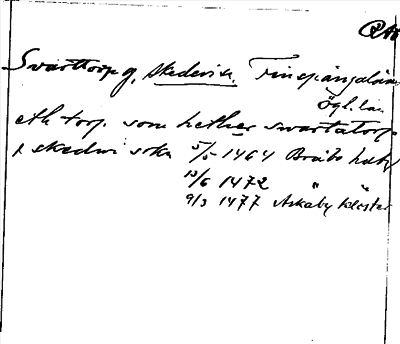 Svarttorp g, Skedevi sn. Finspångalän
Ögl. län
eth torp som hether swartatorp
i skedwi sokn 5/5 1464 Bråbo häkt
13/6 1472 " "
9/3 1477 Askaby kloster